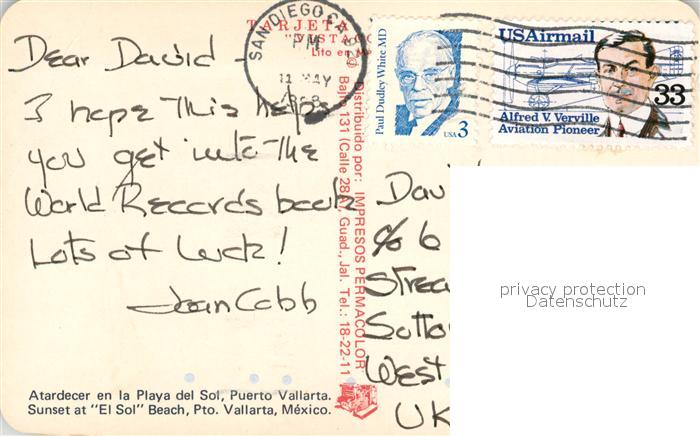 TARJETA
SAN DIEGO CA
PM
11 MAY
Dear David -
I hope this helps
you get into the
World Records book
Lots of luck!
Joan Cobb
Atardecer en la Playa del Sol, Puerto Vallarta.
Sunset at "El Sol" Beach, Pto. Vallarta, México.
Distribuido por: IMPRESOS PERMACOLOR
Bajío 131 (Calle 28A) Guad., Jal. Tel.: 18-22-11
Paul Dudley White MD
USA 3
USAirmail
33
Alfred V. Verville
Aviation Pioneer
Dav
c/o 6
Stree
Sutto
West
UK
privacy protection
Datenschutz